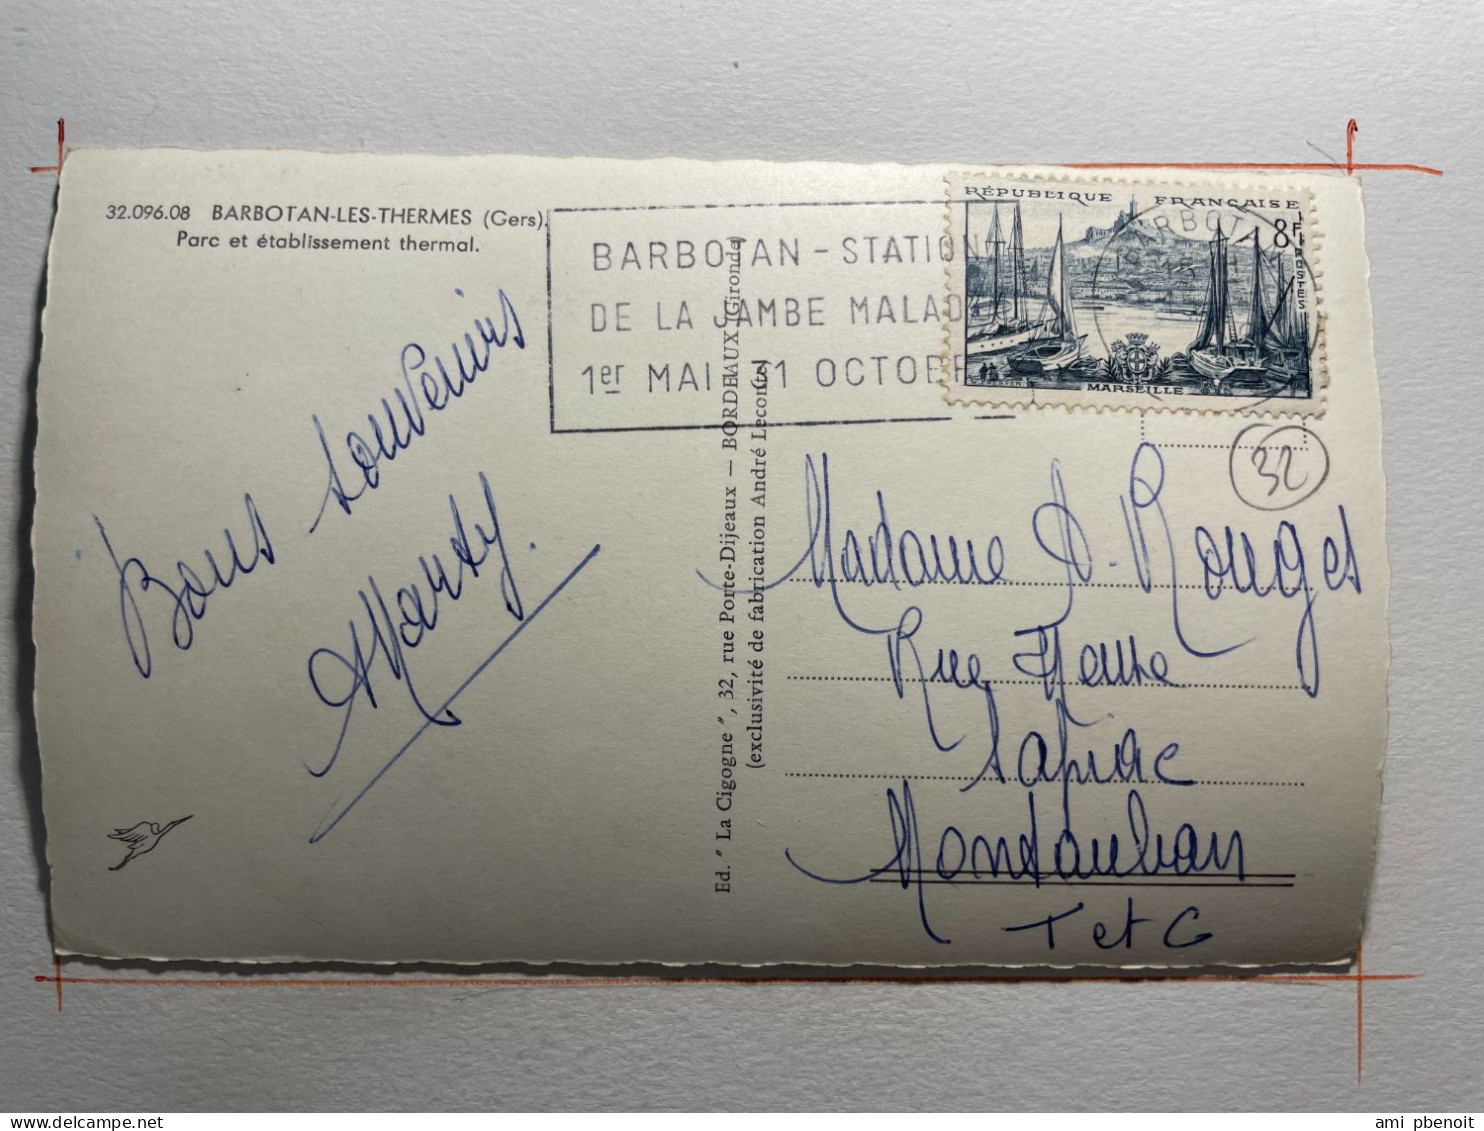 32.096.08 BARBOTAN-LES-THERMES (Gers).
Parc et établissement thermal.
BARBOTAN - STATION
DE LA JAMBE MALAD
1er MAI 31 OCTOBR
RÉPUBLIQUE FRANÇAISE
8F
POSTES
MARSEILLE
BARBOTAN
32
Bons souvenirs
Ed. "La Cigogne", 32, rue Porte-Dijeaux — BORDEAUX (Gironde)
(exclusivité de fabrication André Leconte)
Madame A. Rouges
Rue Haute
Sapiac
Montauban
T et G
ami pbenoit